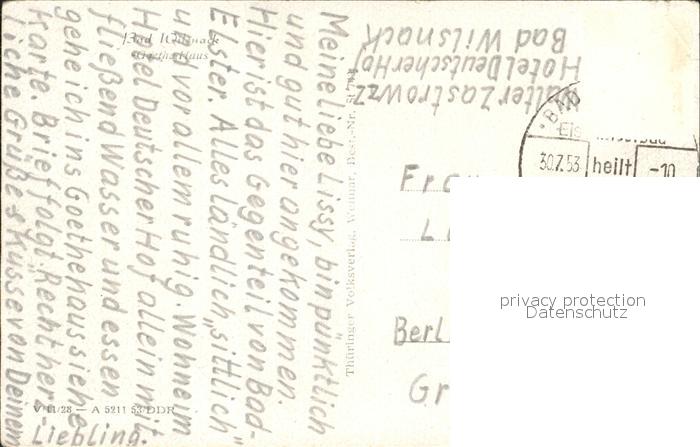 Meine liebe Lissy, bin pünktlich
und gut hier angekommen.
Hier ist das Gegenteil von Bad-
Elster. Alles ländlich „sittlich"
u. vor allem ruhig. Wohne im
Hotel Deutscher Hof allein mit
fließend Wasser und essen
gehe ich ins Goethehaus siehe
Karte. Brief folgt. Recht herz-
liche Grüße & Küsse von Deinem
Liebling.
Bad Wilsnack
Goethe-Haus
V 11/28 — A 5211 53 DDR
Thüringer Volksverlag, Weimar, Best.-Nr.
Walter Zastrow zZ
Hotel Deutscher Hof
Bad Wilsnack
BAD
Eis
30.7.53
heilt
-10
Fra
L
Berl
Gr
privacy protection
Datenschutz